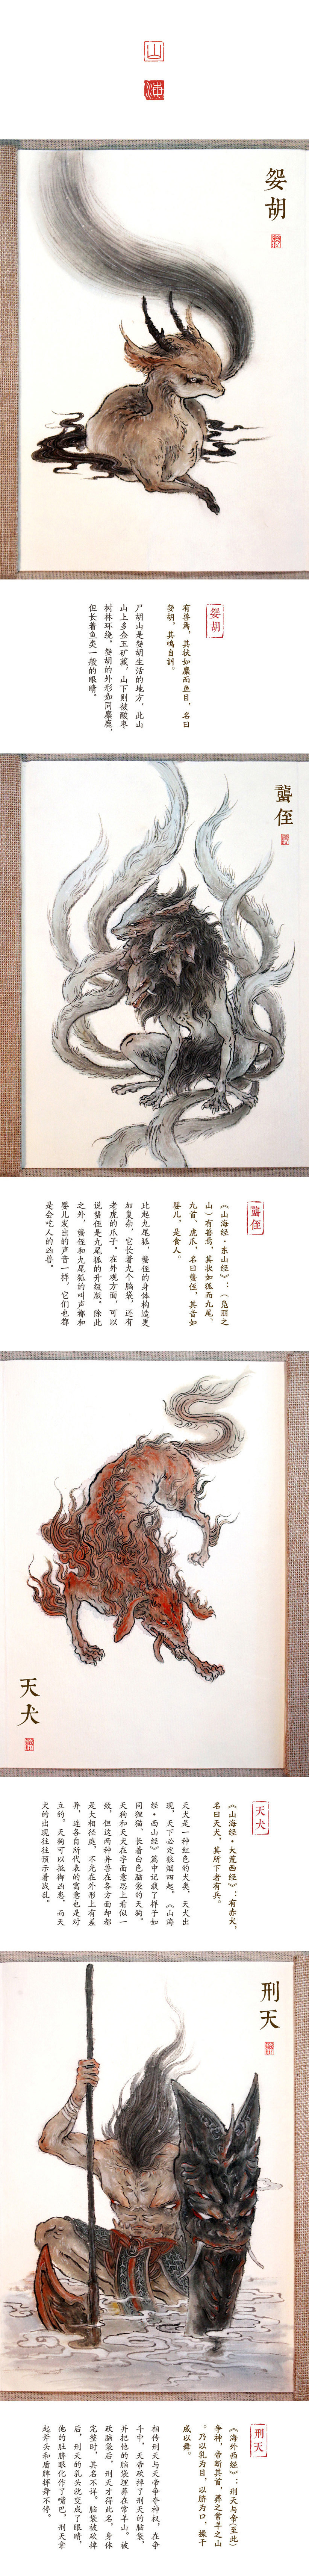 山
海
妴胡
妴胡
有兽焉，其状如麋而鱼目，名曰
妴胡，其鸣自訆。
尸胡山是妴胡生活的地方，此山
山上多金玉矿藏，山下则被酸枣
树林环绕。妴胡的外形如同麋鹿，
但长着鱼类一般的眼睛。
蠪侄
蠪侄
《山海经·东山经》：（凫丽之
山）有兽焉，其状如狐而九尾、
九首、虎爪，名曰蠪侄，其音如
婴儿，是食人。
比起九尾狐，蠪侄的身体构造更
加复杂，它长着九个脑袋，还有
老虎的爪子。在外观方面，可以
说蠪侄是九尾狐的升级版。除此
之外，蠪侄和九尾狐的叫声都和
婴儿发出的声音一样，它们也都
是会吃人的凶兽。
天犬
天犬
《山海经·大荒西经》：有赤犬，
名曰天犬，其所下者有兵。
天犬是一种红色的犬类，天犬出
现，天下必定狼烟四起。《山海
经·西山经》篇中记载了样子如
同狸猫、长着白色脑袋的天狗。
天狗和天犬在字面意思上看似一
致，但这两种异兽在各方面却都
是大相径庭，不光在外形上有差
异，连各自所代表的寓意也是对
立的。天狗可以抵御凶患，而天
犬的出现往往预示着战乱。
刑天
刑天
《海外西经》：刑天与帝(至此)
争神，帝断其首，葬之常羊之山
。乃以乳为目，以脐为口，操干
戚以舞。
相传刑天与天帝争夺神权，在争
斗中，天帝砍掉了刑天的脑袋，
并把他的脑袋埋葬在常羊山。被
砍脑袋后，刑天才得此名，身体
完整时，其名不详。脑袋被砍掉
后，刑天的乳头就变成了眼睛，
他的肚脐眼化作了嘴巴，刑天拿
起斧头和盾牌挥舞不停。